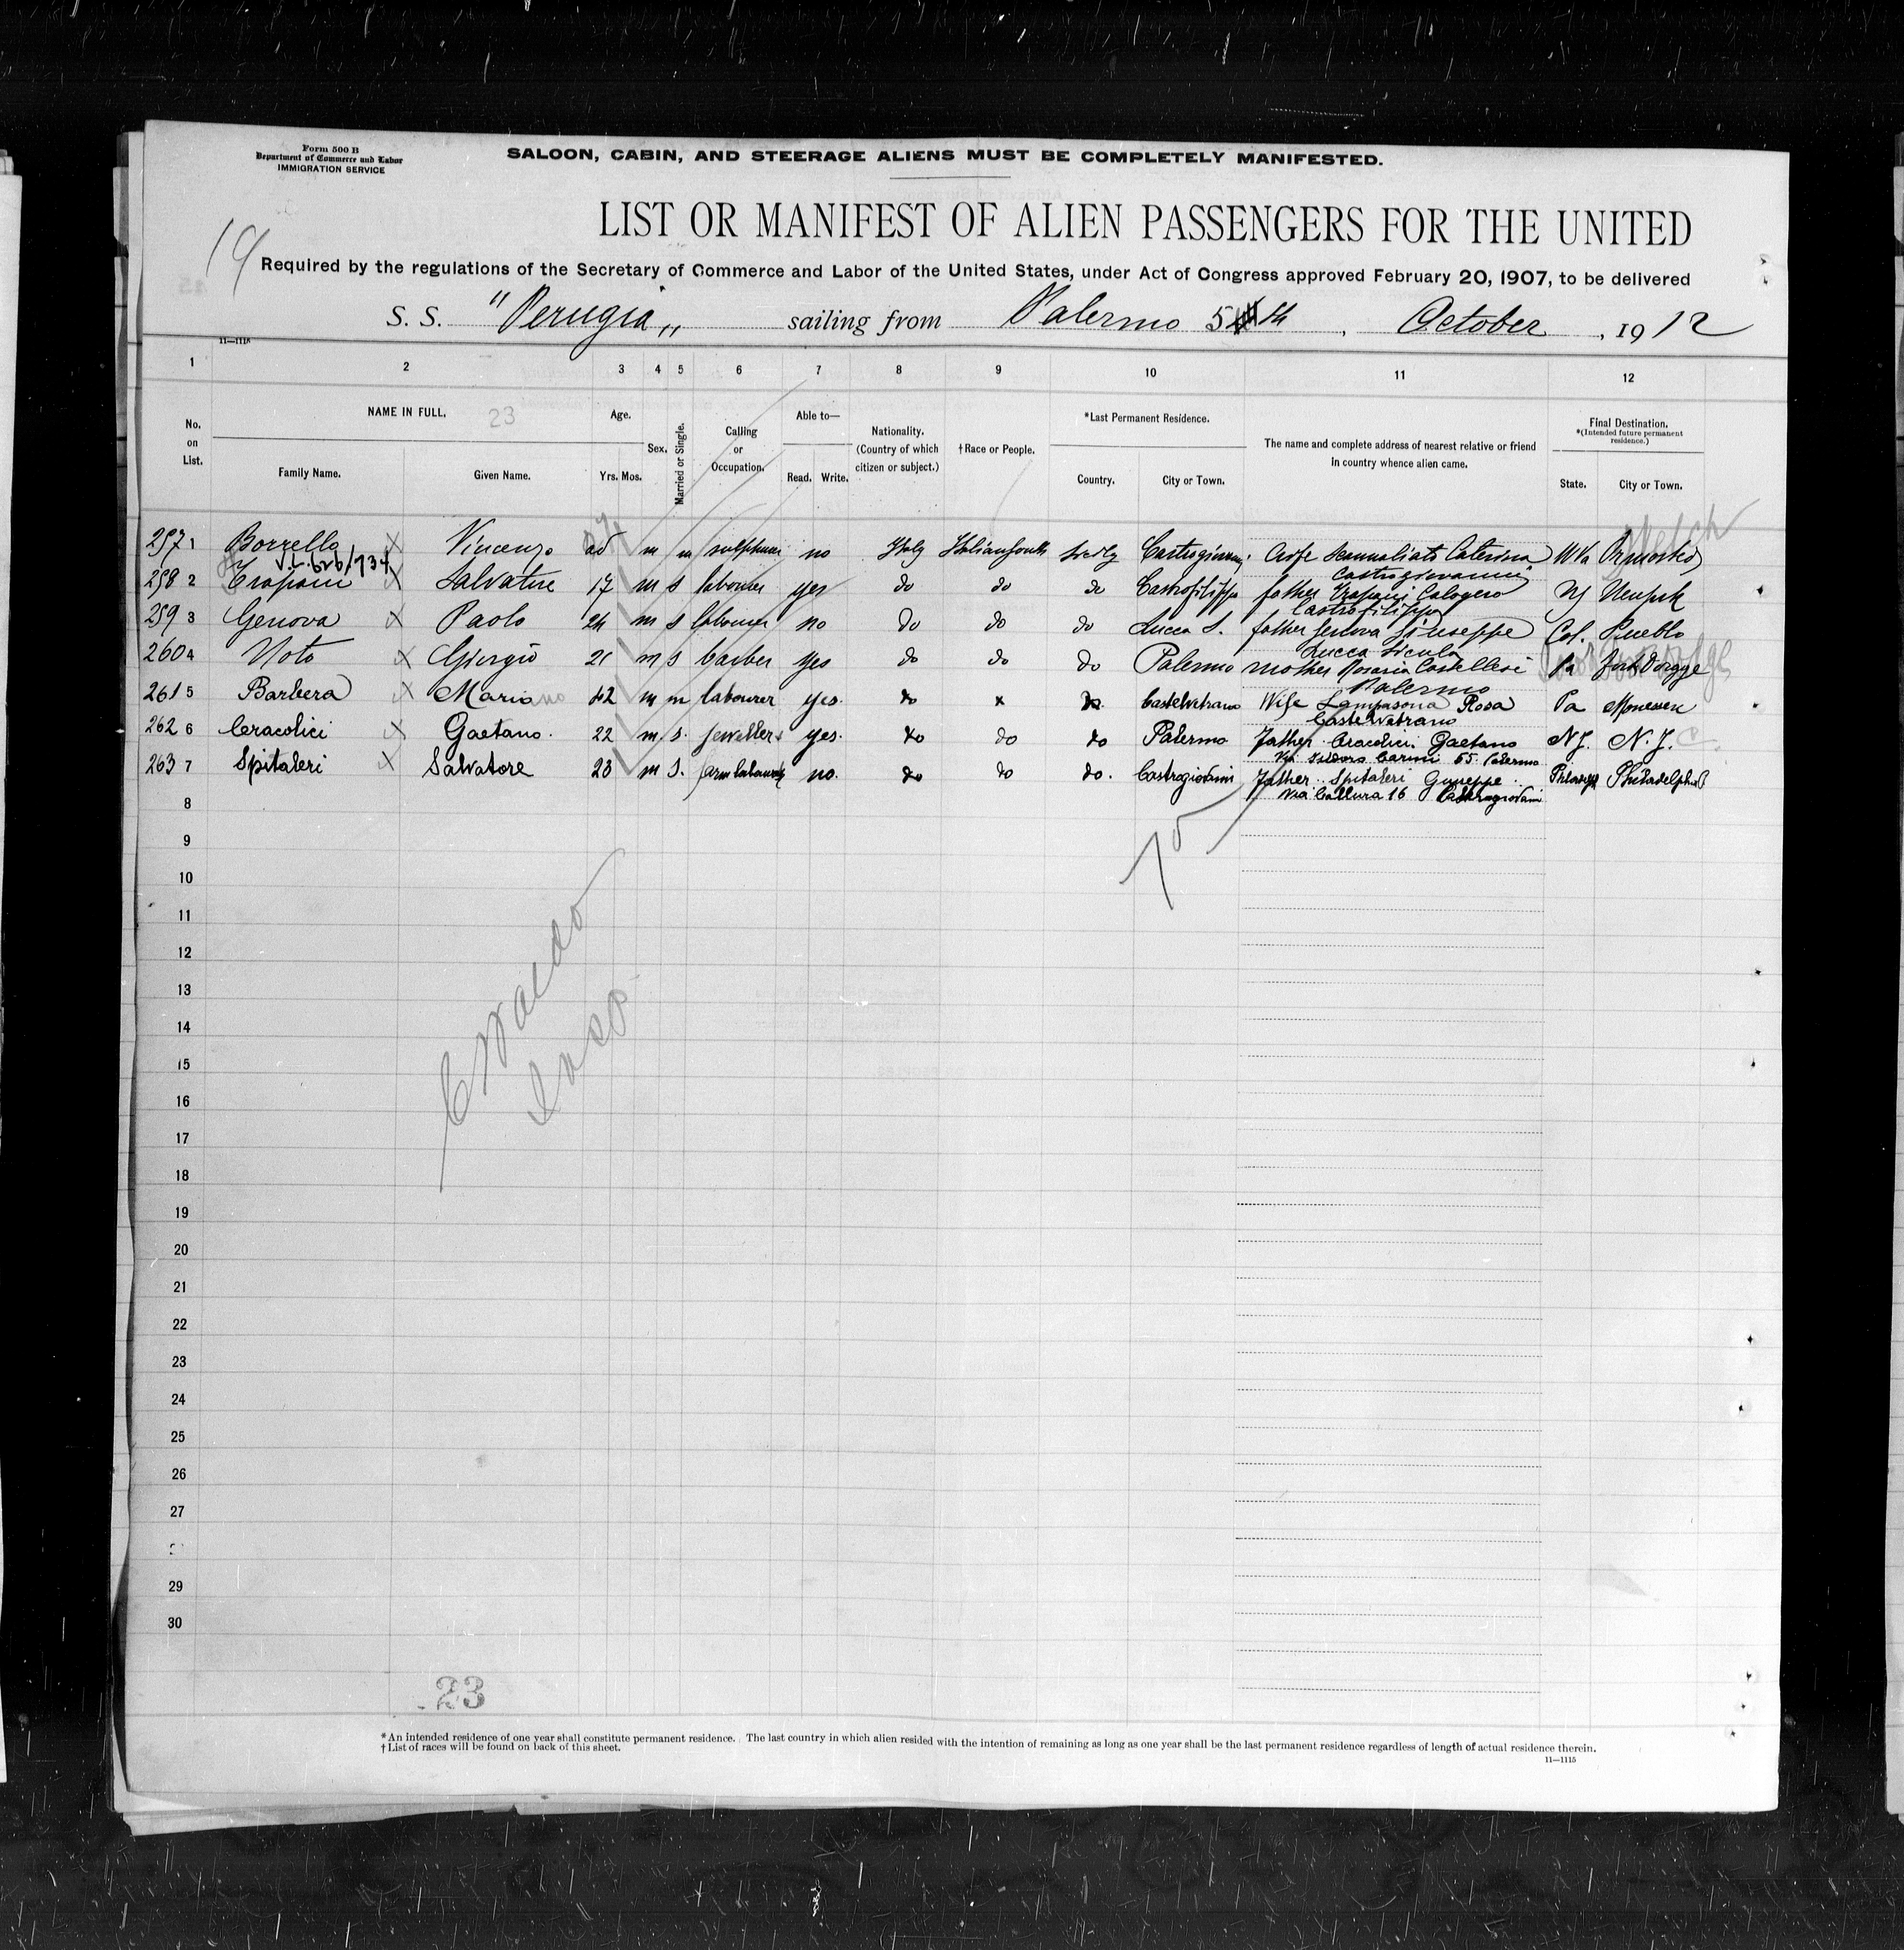 Form 500 B
Department of Commerce and Labor
IMMIGRATION SERVICE
SALOON, CABIN, AND STEERAGE ALIENS MUST BE COMPLETELY MANIFESTED.
19
LIST OR MANIFEST OF ALIEN PASSENGERS FOR THE UNITED
Required by the regulations of the Secretary of Commerce and Labor of the United States, under Act of Congress approved February 20, 1907, to be delivered
S. S. "Perugia" sailing from Palermo 5th, October, 1912
11—1115
1 2 3 4 5 6 7 8 9 10 11 12
No. on List.
NAME IN FULL. 23
Family Name. Given Name.
Age.
Yrs. Mos.
Sex.
Married or Single.
Calling or Occupation.
Able to—
Read. Write.
Nationality. (Country of which citizen or subject.)
†Race or People.
*Last Permanent Residence.
Country. City or Town.
The name and complete address of nearest relative or friend in country whence alien came.
Final Destination.
*(Intended future permanent residence.)
State. City or Town.
Welch
257 1 Borrello X Vincenzo m m sulphur no Italy Italian South Sicily Castrogiovanni Wife Scannaliato Caterina W Va
Castrogiovanni
258 2 Trapani X Salvatore 17 m s labourer yes do do do Castrofilippo father Trapani Calogero NY
Castrofilippo
259 3 Genova X Paolo 24 m s labourer no do do do Lucca S. father Genova Giuseppe Col. Pueblo
Lucca Sicula
260 4 Noto X Giorgio 21 m s barber yes do do do Palermo mother Rosaria Castellesi Pa
Palermo
261 5 Barbera X Mariano 42 m m labourer yes. do x do Castelvetrano Wife Lampasona Rosa Pa Monessen
Castelvetrano
262 6 Ceracolici X Gaetano. 22 m. s. jewellers yes. do do do Palermo Father Ceracolici Gaetano NJ. N. J.
Via Isidoro Carini 55 Palermo
263 7 Spitaleri X Salvatore 23 m s. farm labourer no. do do do. Castrogiovanni Father Spitaleri Guseppe Philadelphia
Via Callura 16 Castrogiovanni
8
9
10
11
12
13
14
15
16
17
18
19
20
21
22
23
24
25
26
27
29
30
23
*An intended residence of one year shall constitute permanent residence. The last country in which alien resided with the intention of remaining as long as one year shall be the last permanent residence regardless of length of actual residence therein.
†List of races will be found on back of this sheet.
11—1115